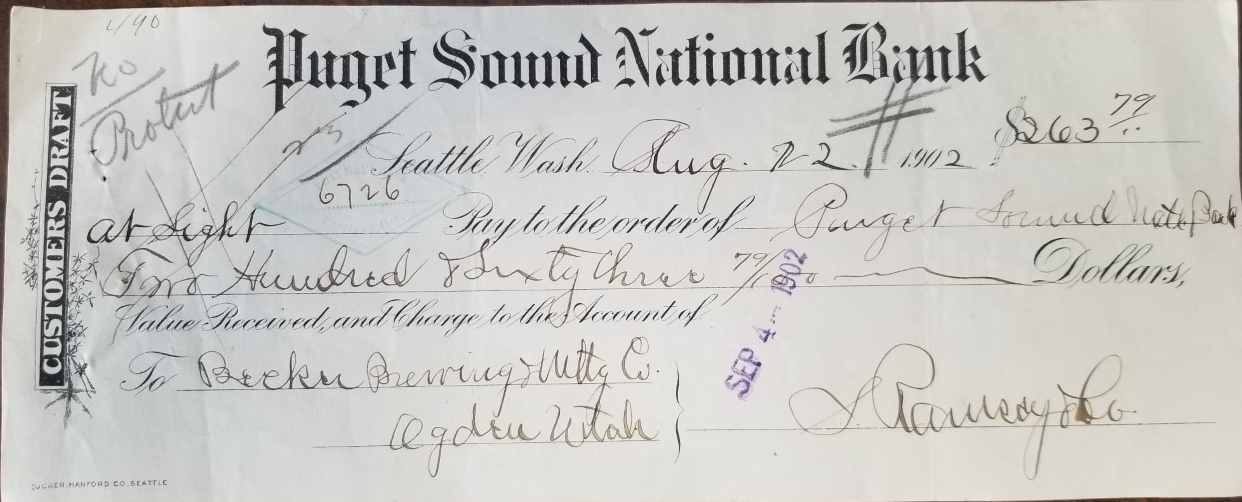 490
No
Protest
Puget Sound National Bank
CUSTOMERS DRAFT
$263 79
Seattle, Wash. Aug. 22 1902
6726
At Sight Pay to the order of Puget Sound Natl Bank
Two Hundred & Sixty Three 79/100 Dollars,
Value Received, and Charge to the Account of
SEP 4 - 1902
To Becker Brewing & Mttg Co.
Ogden Utah
S Ramsay & Co.
TUCKER, HANFORD CO. SEATTLE